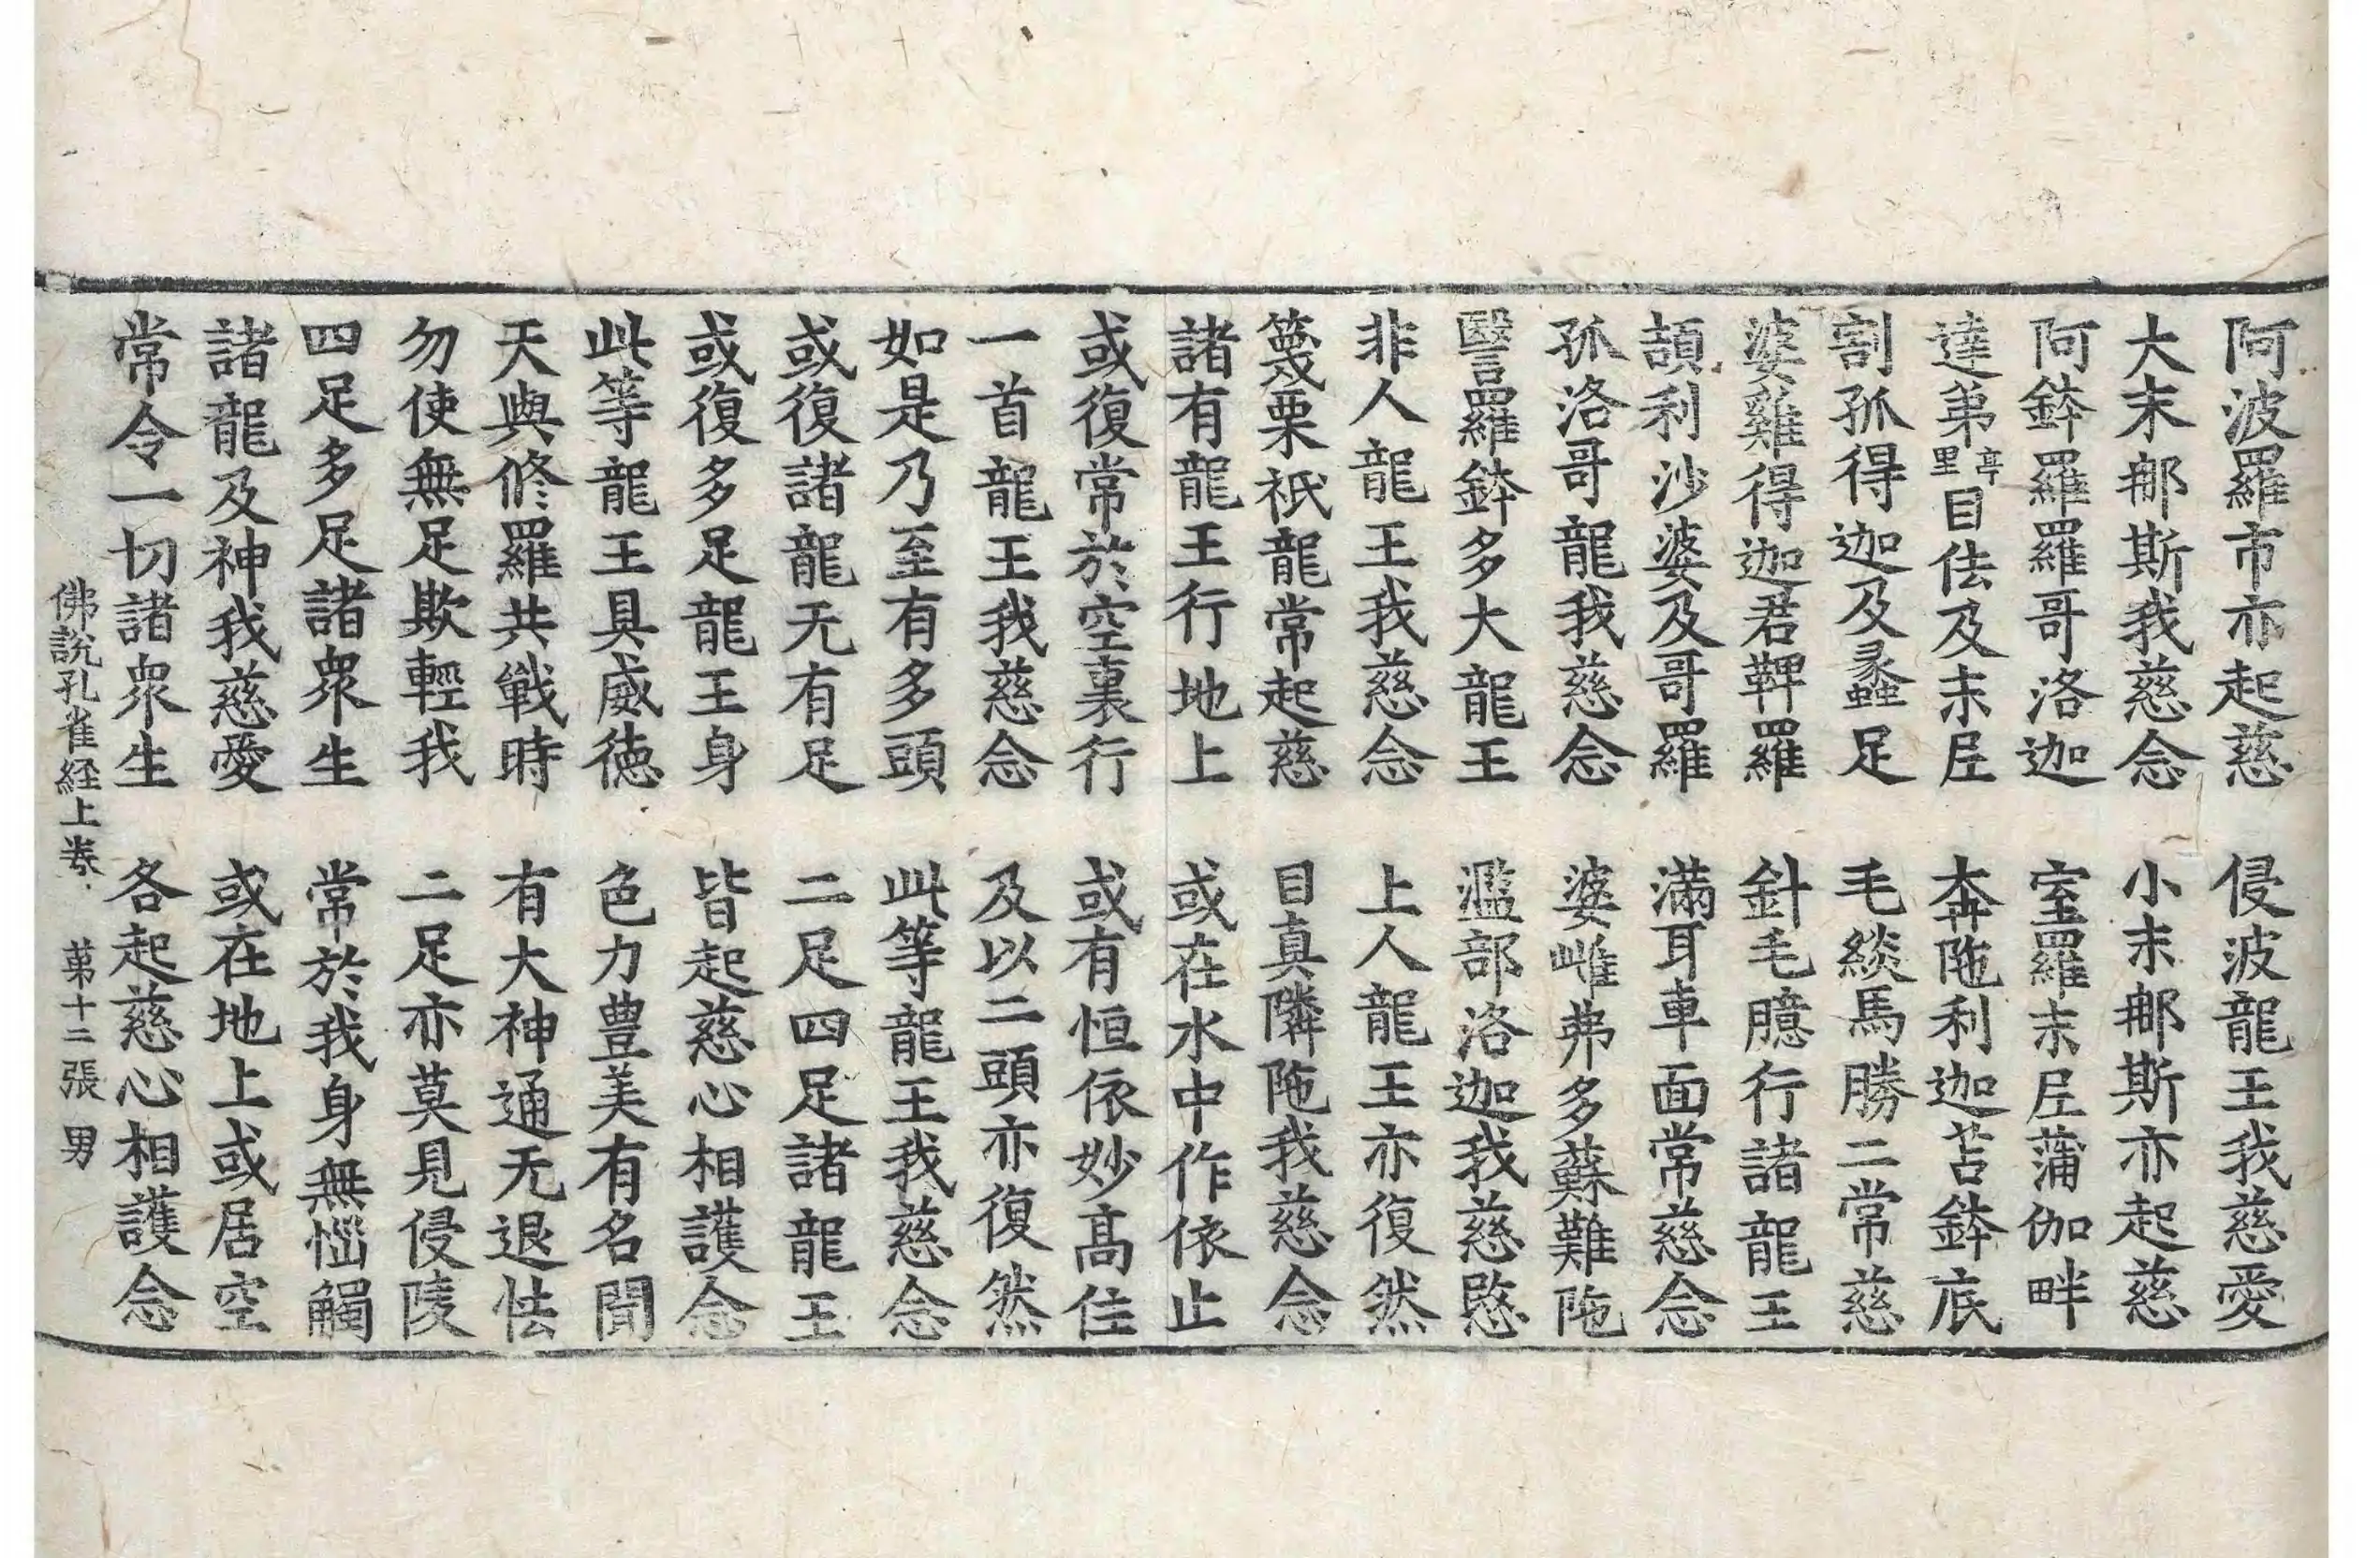 阿波羅市亦起慈　侵波龍王我慈愛
大末那斯我慈念　小末那斯亦起慈
阿鉢羅羅哥洛迦　室羅末𡰱蒲伽畔
達弟亭里目佉及末𡰱　犇陁利迦苫鉢底
割孤得迦及蠡足　毛緂馬勝二常慈
婆雞得迦君鞞羅　針毛臆行諸龍王
頡利沙婆及哥羅　滿耳車面常慈念
孤洛哥龍我慈念　婆雌弗多蘇難陁
翳羅鉢多大龍王　濫部洛迦我慈愍
非人龍王我慈念　上人龍王亦復然
篾栗祇龍常起慈　目真隣陁我慈念
諸有龍王行地上　或在水中作依止
或復常於空裏行　或有恒依妙髙住
一首龍王我慈念　及以二頭亦復然
如是乃至有多頭　此等龍王我慈念
或復諸龍无有足　二足四足諸龍王
或復多足龍王身　皆起慈心相護念
此等龍王具威徳　色力豊美有名聞
天與修羅共戰時　有大神通无退怯
勿使無足欺輕我　二足亦莫見侵陵
四足多足諸衆生　常於我身無惱觸
諸龍及神我慈愛　或在地上或居空
常令一切諸衆生　各起慈心相護念
佛說孔雀経上卷　第十二張　男